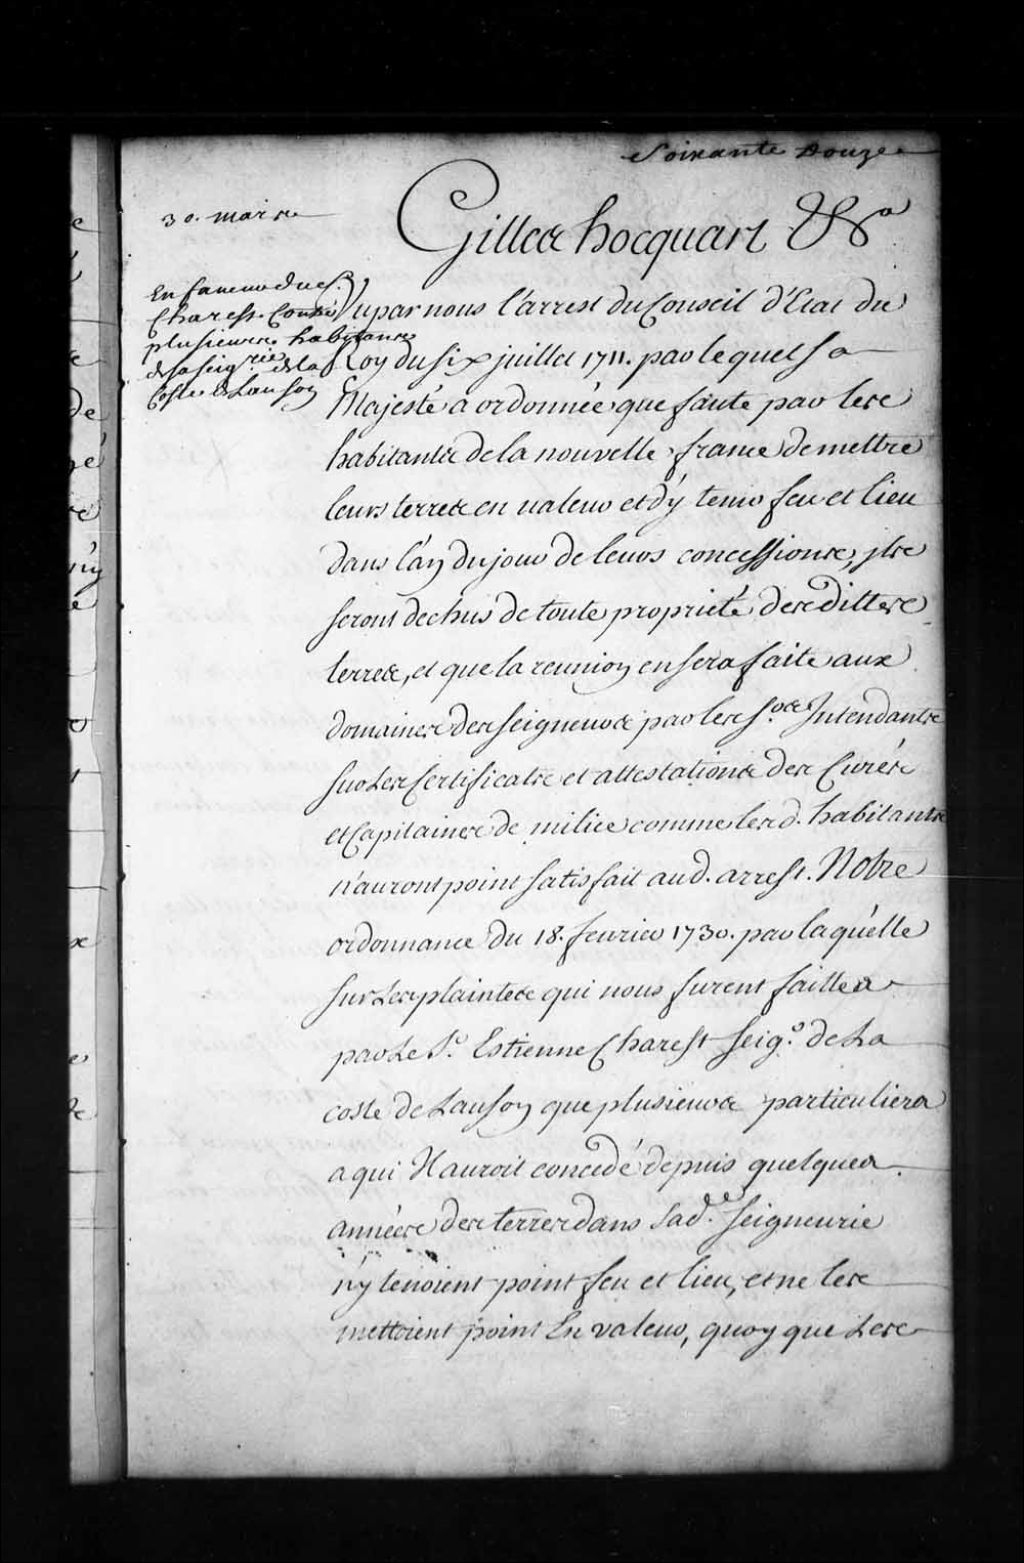 Soixante Douze
30. mars
Gilles hocquart &c.a
En faveur du S.
Charest Contre
plusieurs habitans
de sa seig.rie de la
Coste de Lauson
Vu par nous l'arrest du Conseil d'Etat du
Roy du six juillet 1711. par lequel sa
Majesté a ordonnée que faute par les
habitants de la nouvelle france de mettre
leurs terres en valeur et d'y tenir feu et lieu
dans l'an du jour de leurs concessions, ils
seront dechus de toute proprieté desdittes
terres, et que la reunion en sera faite aux
domaines des seigneurs par les S.rs Intendants
sur Les Certificats et attestations des Curés
et Capitaines de milice comme lesd. habitants
n'auront point satisfait aud. arrest. Notre
ordonnance du 18. fevrier 1730. par laquelle
sur Les plaintes qui nous furent faittes
par Le S.r Estienne Charest seig.r de La
coste de Lauson que plusieurs particuliers
a qui Il auroit concedé depuis quelques
années des terres dans sad.e seigneurie
n'y tenoient point feu et lieu, et ne les
mettoient point En valeur, quoy que Les